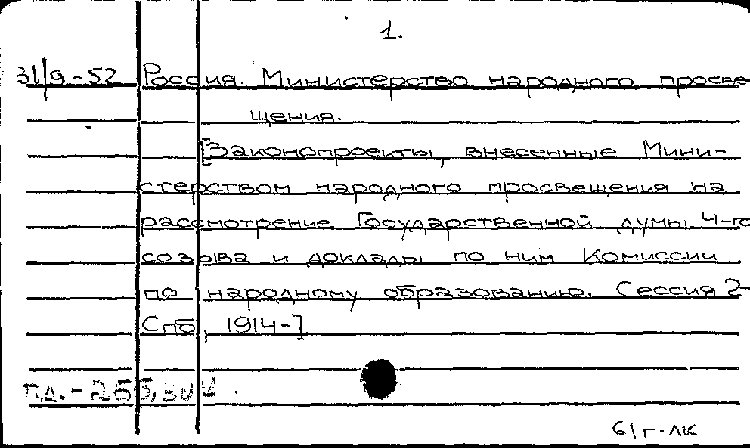 1.
31/9-52 Россия. Министерство народного просве
щения.
[Законопроекты, внесенные Мини-
стерством народного просвещения на
рассмотрение Государственной думы 4-го
созыва и доклады по ним Комиссии
по народному образованию. Сессия 2-
Спб, 1914-]
61г-ЛК